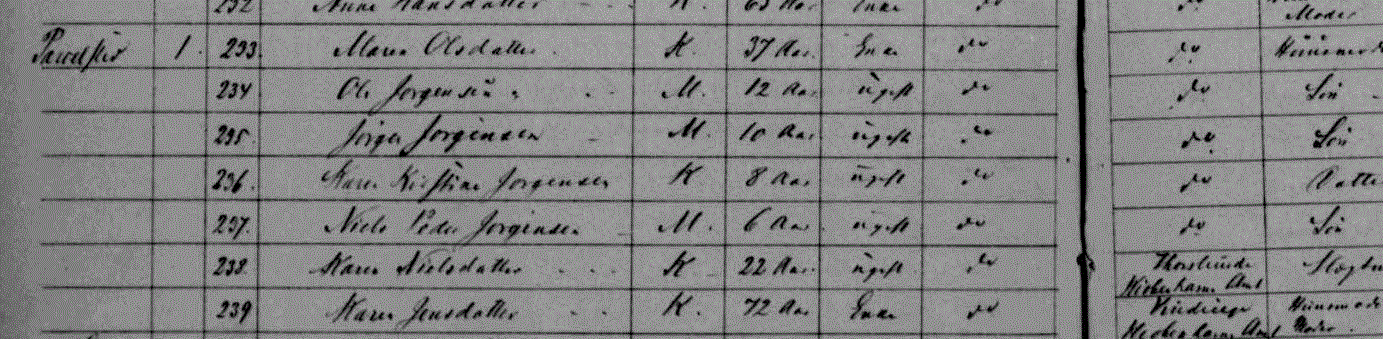 232 Anne Hansdatter K. 63 Aar Enke do do
Moder
Parcelsted 1. 233. Maren Olsdatter K. 37 Aar Enke do do
234 Ole Jørgensen M. 12 Aar ugift do do Søn
235. Jørgen Jørgensen M. 10 Aar ugift do do Søn
236. Karen Kirstine Jørgensen K 8 Aar ugift do do Datter
237. Niels Peder Jørgensen M. 6 Aar ugift do do Søn
238. Karen Nielsdatter K 22 Aar ugift do Thorslunde
Kiøbenhavns Amt
239 Karen Jensdatter K. 72 Aar Enke do Vindinge
Amt Moder.